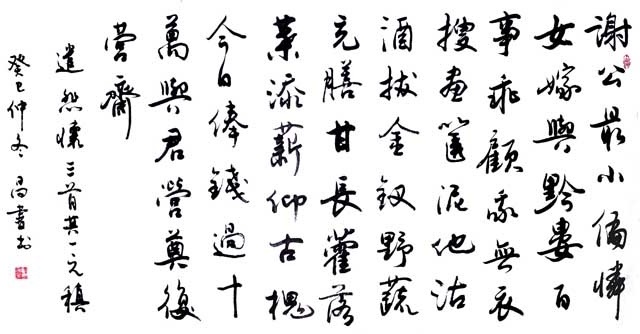 謝公最小偏憐
女嫁與黔婁百
事乖顧我無衣
搜畫篋泥他沽
酒拔金釵野蔬
充膳甘長藿落
葉添薪仰古槐
今日俸錢過十
萬與君營奠復
營齋
遣悲懷三首其一元稹
癸巳仲冬書於